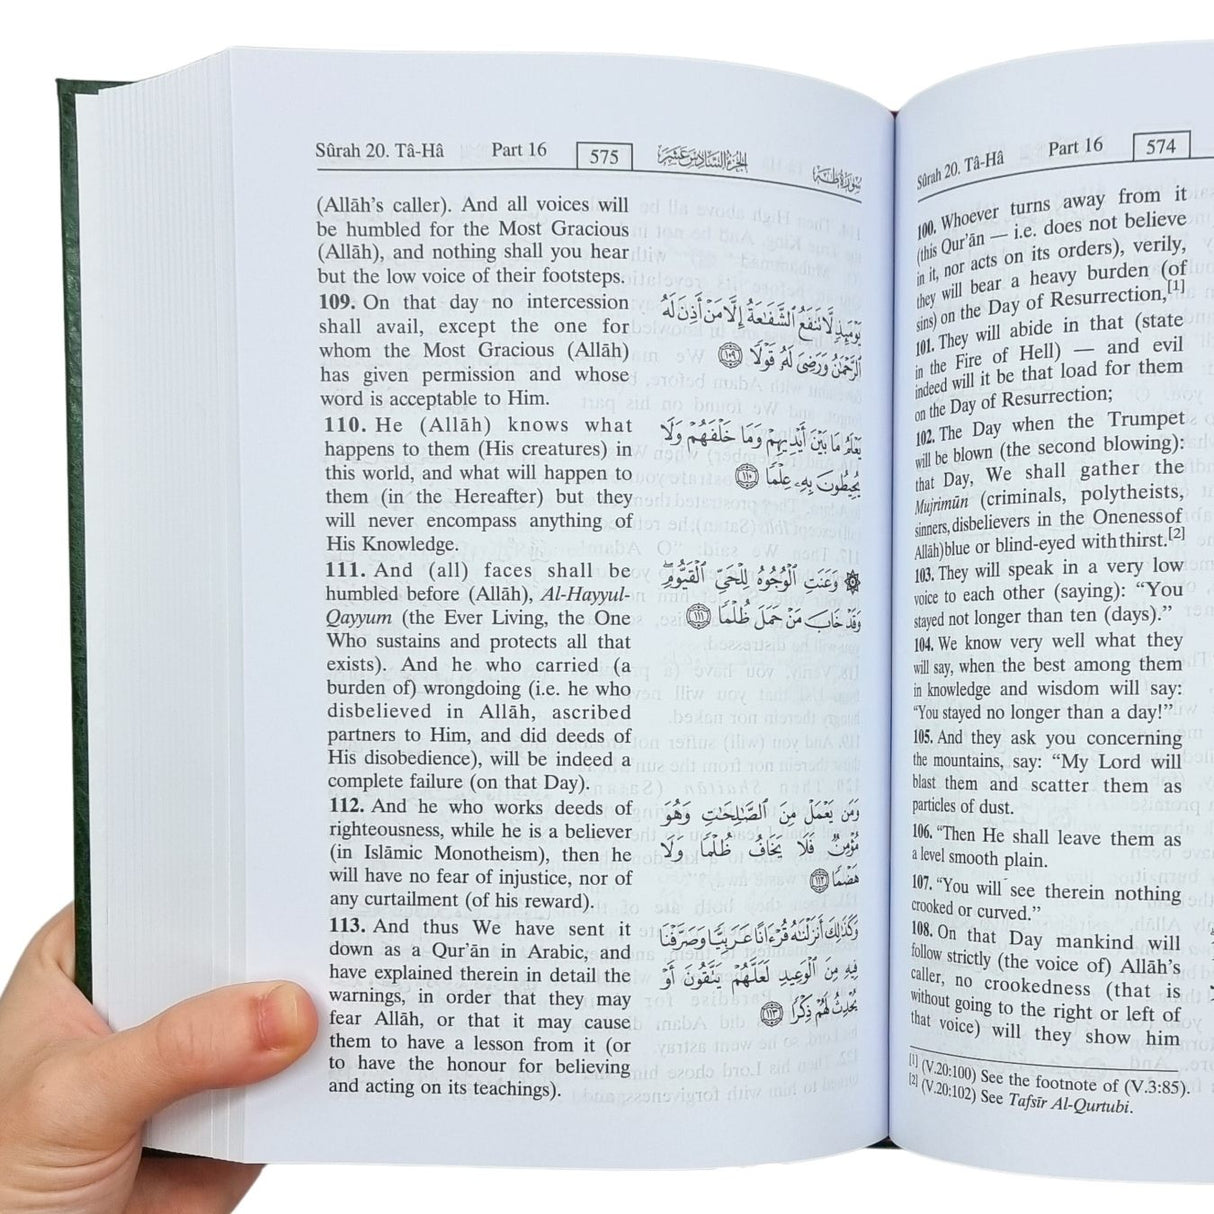 Sûrah 20. Tâ-Hâ Part 16 575 الجزء السادس عشر سورة طه
(Allāh's caller). And all voices will
be humbled for the Most Gracious
(Allāh), and nothing shall you hear
but the low voice of their footsteps.
109. On that day no intercession
shall avail, except the one for
whom the Most Gracious (Allāh)
has given permission and whose
word is acceptable to Him.
110. He (Allāh) knows what
happens to them (His creatures) in
this world, and what will happen to
them (in the Hereafter) but they
will never encompass anything of
His Knowledge.
111. And (all) faces shall be
humbled before (Allāh), Al-Hayyul-
Qayyum (the Ever Living, the One
Who sustains and protects all that
exists). And he who carried (a
burden of) wrongdoing (i.e. he who
disbelieved in Allāh, ascribed
partners to Him, and did deeds of
His disobedience), will be indeed a
complete failure (on that Day).
112. And he who works deeds of
righteousness, while he is a believer
(in Islāmic Monotheism), then he
will have no fear of injustice, nor of
any curtailment (of his reward).
113. And thus We have sent it
down as a Qur'ān in Arabic, and
have explained therein in detail the
warnings, in order that they may
fear Allāh, or that it may cause
them to have a lesson from it (or
to have the honour for believing
and acting on its teachings).
يَوْمَئِذٍ لَّا تَنفَعُ الشَّفَاعَةُ إِلَّا مَنْ أَذِنَ لَهُ
الرَّحْمَٰنُ وَرَضِيَ لَهُ قَوْلًا ١٠٩
يَعْلَمُ مَا بَيْنَ أَيْدِيهِمْ وَمَا خَلْفَهُمْ وَلَا
يُحِيطُونَ بِهِ عِلْمًا ١١٠
۞ وَعَنَتِ الْوُجُوهُ لِلْحَيِّ الْقَيُّومِ ۖ
وَقَدْ خَابَ مَنْ حَمَلَ ظُلْمًا ١١١
وَمَن يَعْمَلْ مِنَ الصَّالِحَاتِ وَهُوَ
مُؤْمِنٌ فَلَا يَخَافُ ظُلْمًا وَلَا
هَضْمًا ١١٢
وَكَذَٰلِكَ أَنزَلْنَاهُ قُرْءَانًا عَرَبِيًّا وَصَرَّفْنَا
فِيهِ مِنَ الْوَعِيدِ لَعَلَّهُمْ يَتَّقُونَ أَوْ
يُحْدِثُ لَهُمْ ذِكْرًا ١١٣
Sûrah 20. Tâ-Hâ Part 16 574
100. Whoever turns away from it
(this Qur'ān — i.e. does not believe
in it, nor acts on its orders), verily,
they will bear a heavy burden (of
sins) on the Day of Resurrection,[1]
101. They will abide in that (state
in the Fire of Hell) — and evil
indeed will it be that load for them
on the Day of Resurrection;
102. The Day when the Trumpet
will be blown (the second blowing):
that Day, We shall gather the
Mujrimūn (criminals, polytheists,
sinners, disbelievers in the Oneness of
Allāh) blue or blind-eyed with thirst.[2]
103. They will speak in a very low
voice to each other (saying): “You
stayed not longer than ten (days).”
104. We know very well what they
will say, when the best among them
in knowledge and wisdom will say:
“You stayed no longer than a day!”
105. And they ask you concerning
the mountains, say: “My Lord will
blast them and scatter them as
particles of dust.
106. “Then He shall leave them as
a level smooth plain.
107. “You will see therein nothing
crooked or curved.”
108. On that Day mankind will
follow strictly (the voice of) Allāh's
caller, no crookedness (that is
without going to the right or left of
that voice) will they show him
[1] (V.20:100) See the footnote of (V.3:85).
[2] (V.20:102) See Tafsīr Al-Qurtubi.